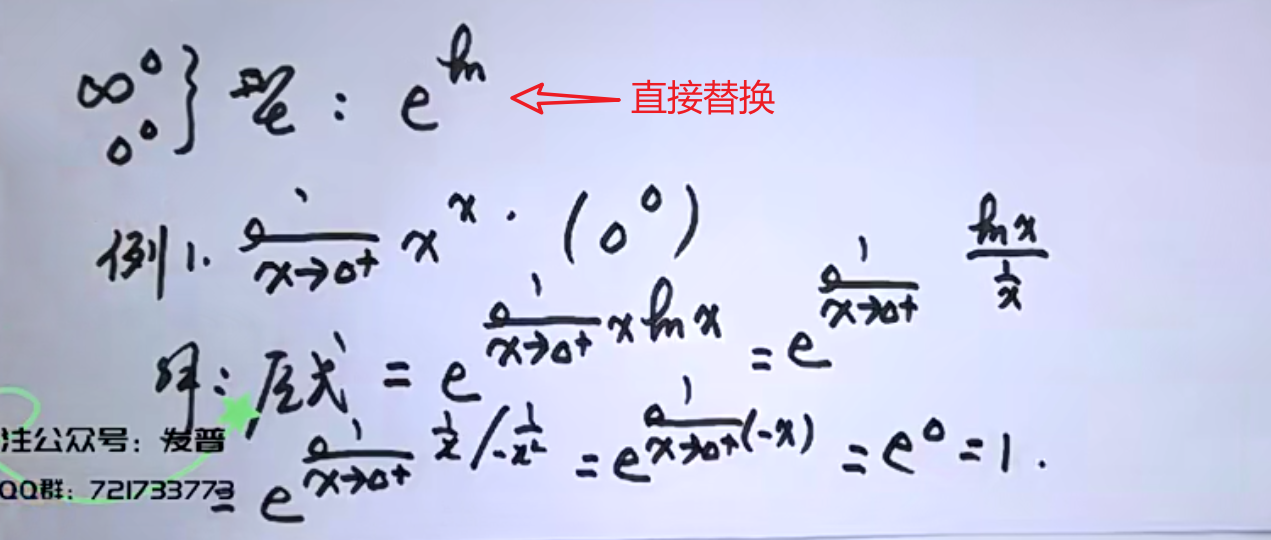 ∞⁰ } 型: e^ln ⇐ 直接替换
0⁰
例1. lim_{x→0⁺} x^x. (0⁰)
解: 原式 = e^{lim_{x→0⁺} x ln x} = e^{lim_{x→0⁺} (ln x)/(1/x)}
= e^{lim_{x→0⁺} (1/x)/(-1/x²)} = e^{lim_{x→0⁺} (-x)} = e⁰ = 1.
注公众号：发普
QQ群：721733773